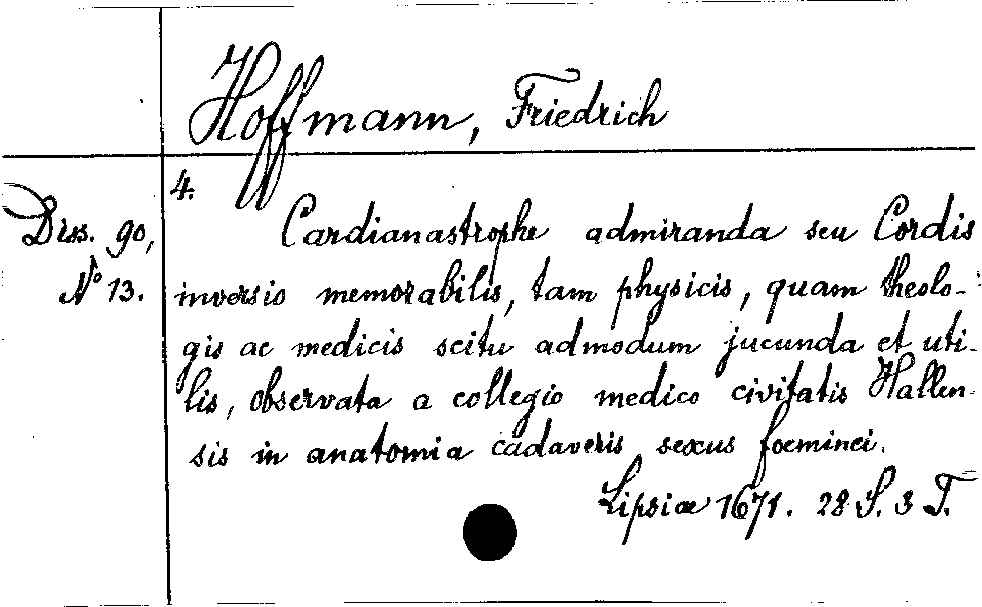 Hoffmann, Friedrich
4.
Diss. 90,
No 13.
Cardianastrophe admiranda seu Cordis
inversio memorabilis, tam physicis, quam theolo-
gis ac medicis scitu admodum jucunda et uti-
lis, observata a collegio medico civitatis Hallen-
sis in anatomia cadaveris sexus foeminei.
Lipsiae 1671. 28 S. 3 T.